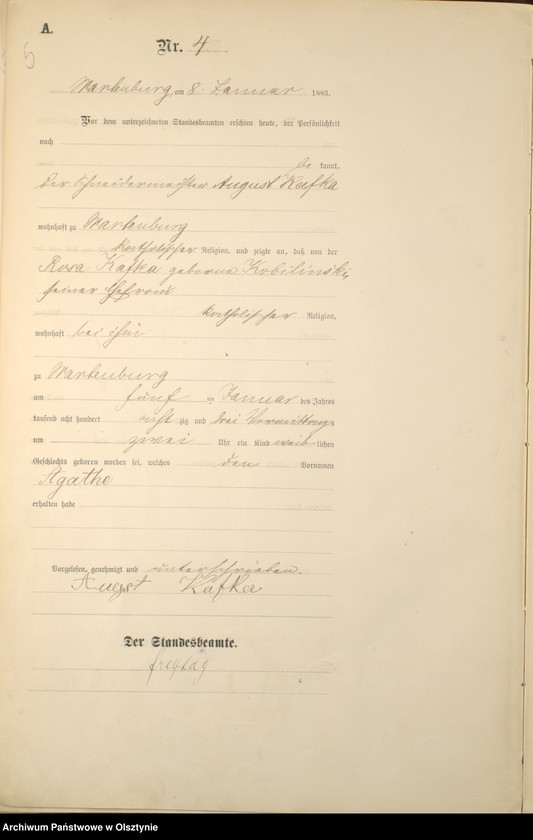 A.
5
Nr. 4
Wartenburg, am 8. Januar 1883.
Vor dem unterzeichneten Standesbeamten erschien heute, der Persönlichkeit
nach
be kannt,
der Schneidermeister August Kafka
wohnhaft zu Wartenburg
katholischer Religion, und zeigte an, daß von der
Rosa Kafka geborne Kobilinski,
seiner Ehefrau
katholischer Religion,
wohnhaft bei ihm
zu Wartenburg
am fünf ten Januar des Jahres
tausend acht hundert acht zig und drei Vormittags
um zwei Uhr ein Kind weib lichen
Geschlechts geboren worden sei, welches den Vornamen
Agathe
erhalten habe
Vorgelesen, genehmigt und unterschrieben.
August Kafka
Der Standesbeamte.
Freytag
Archiwum Państwowe w Olsztynie